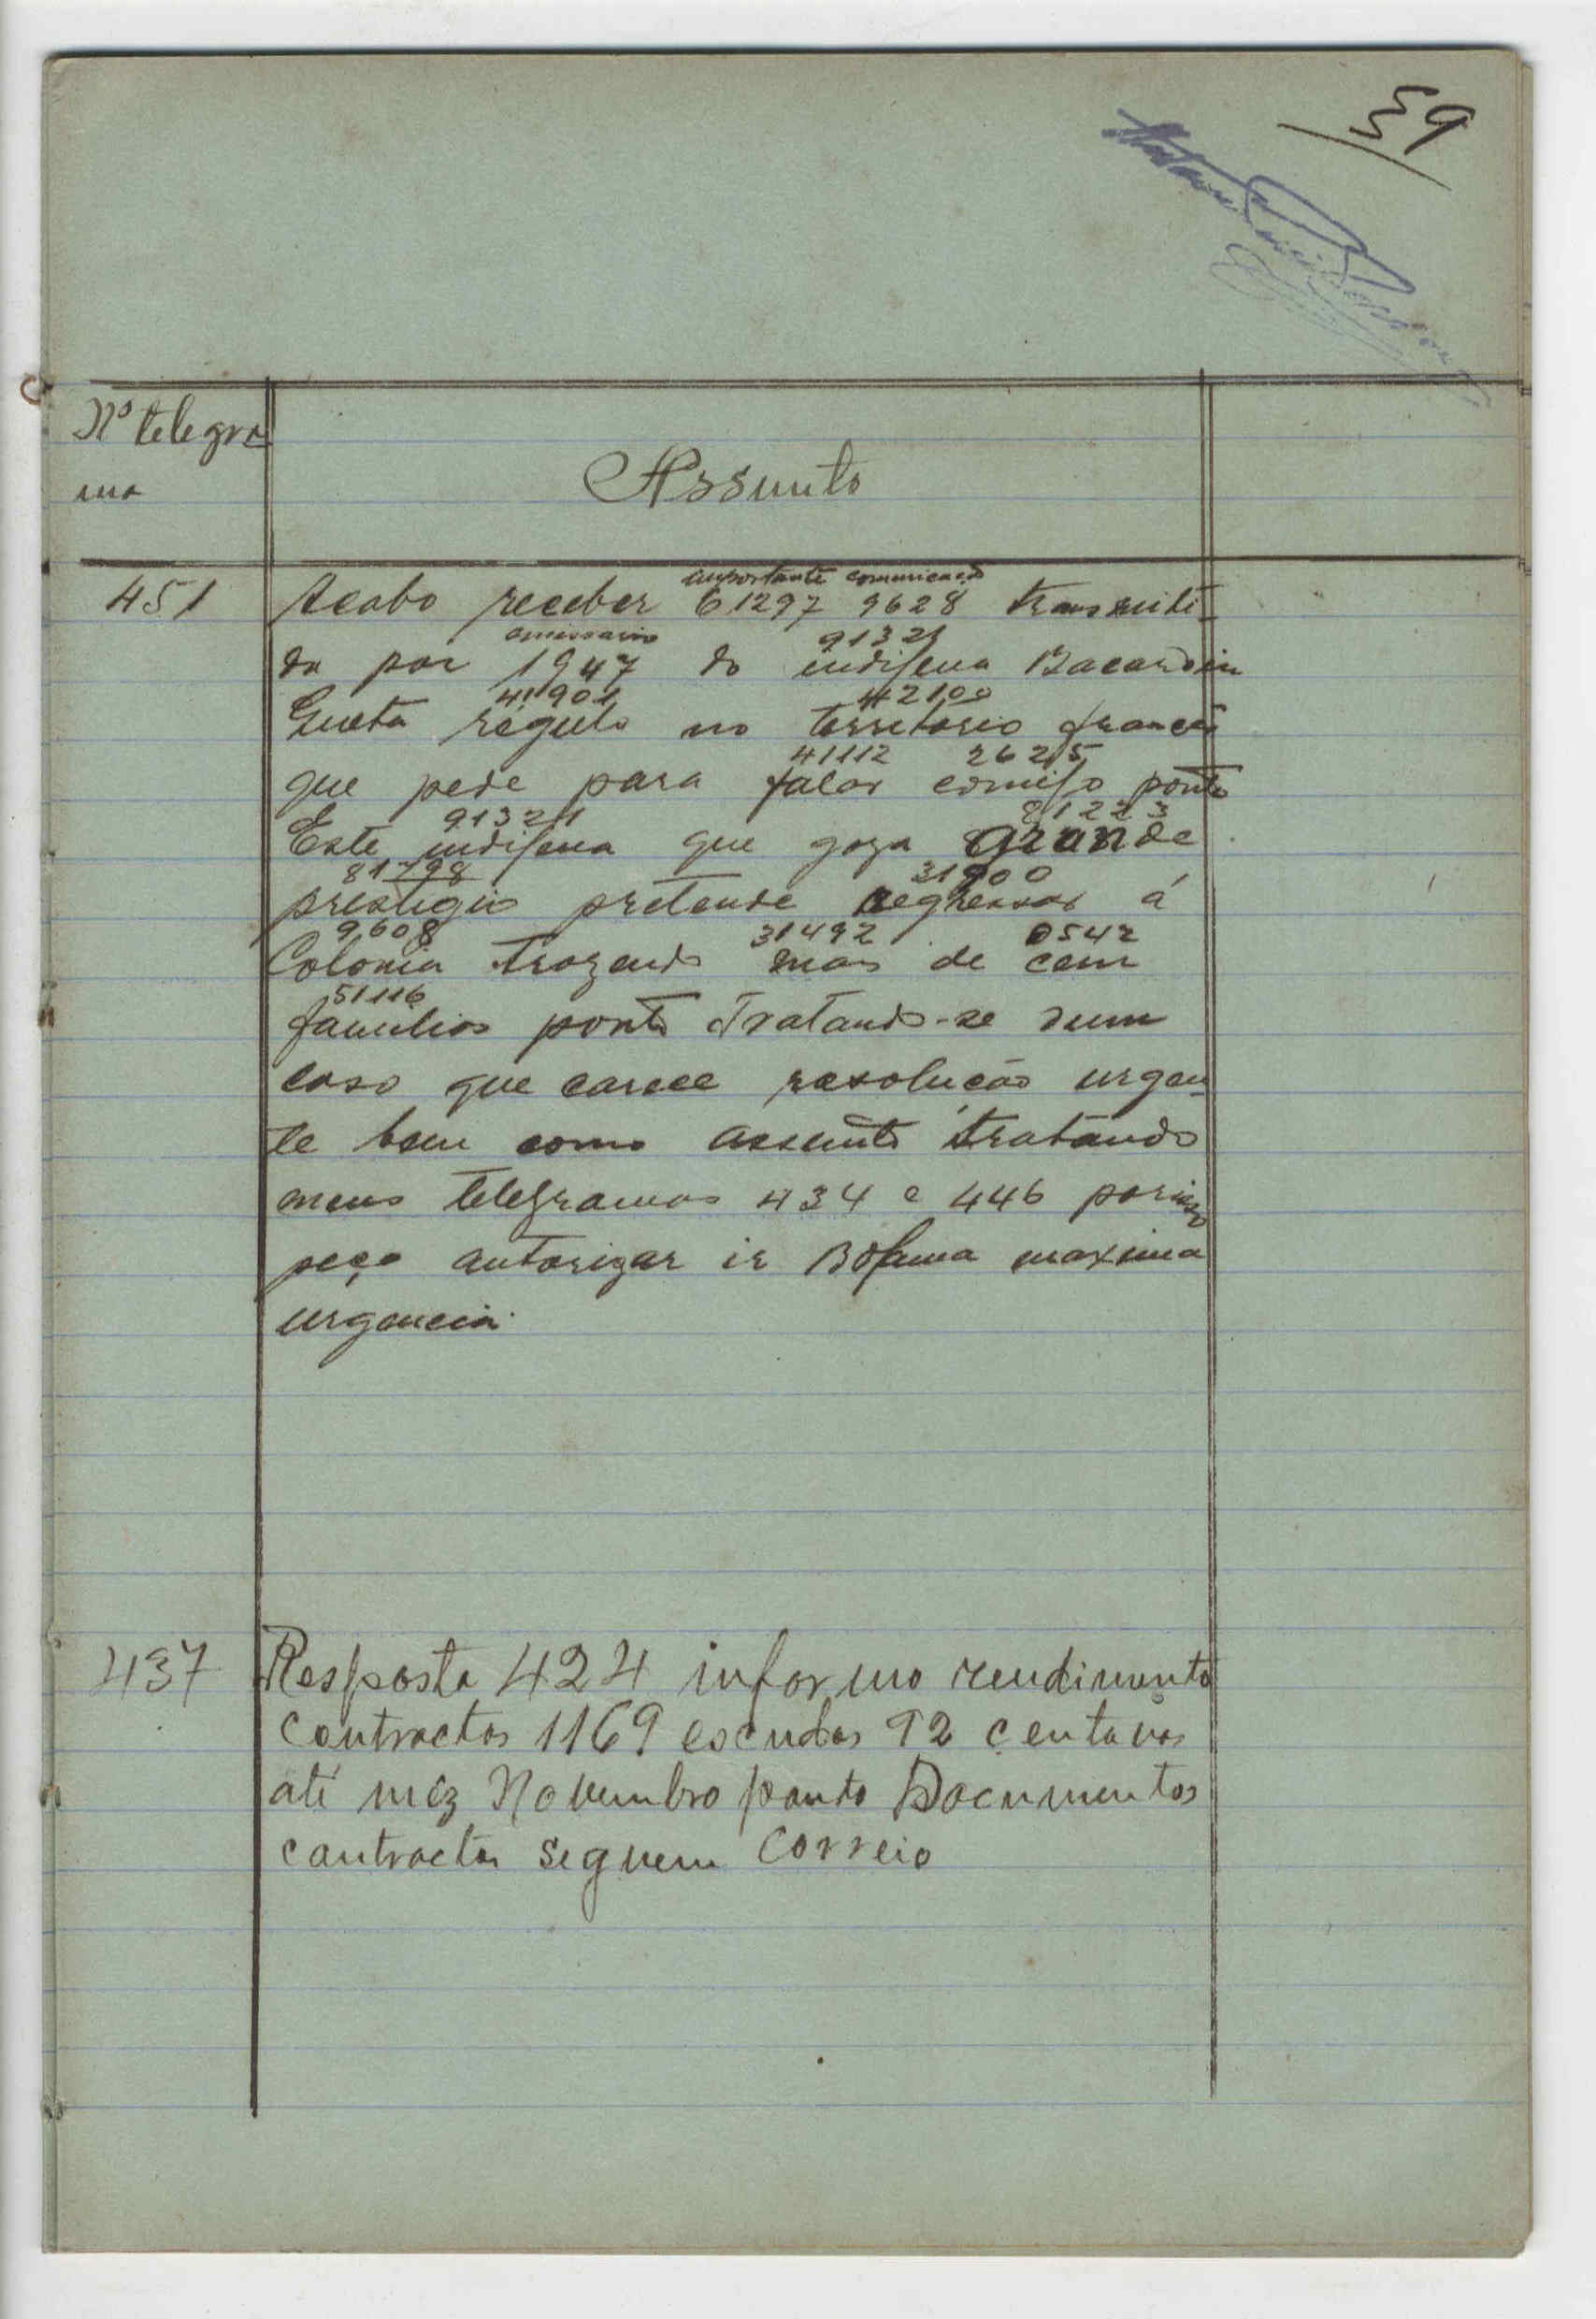 39
Nº telegra
ma
Assunto
importante comunicação
451 Acabo receber 61297 9628 transmiti-
emissario 91321
da por 1947 do indigena Bacar
41901 42100
régulo no territorio francês
41112 26215
que pede para falar comigo ponto
91321 81223
Este indigena que goza grande
81798 31900
prestigio pretende regressar á
9608 31492 0542
Colonia trazendo mais de cem
51116
familias ponto Tratando-se dum
caso que carece resolução urgen-
te bem como assunto tratando
meus telegramas 434 e 446 por isso
peço autorizar ir Bolama maxima
urgencia.
437 Resposta 424 informo rendimento
contractos 1169 escudos 92 centavos
até mêz Novembro ponto Documentos
contractos seguem correio